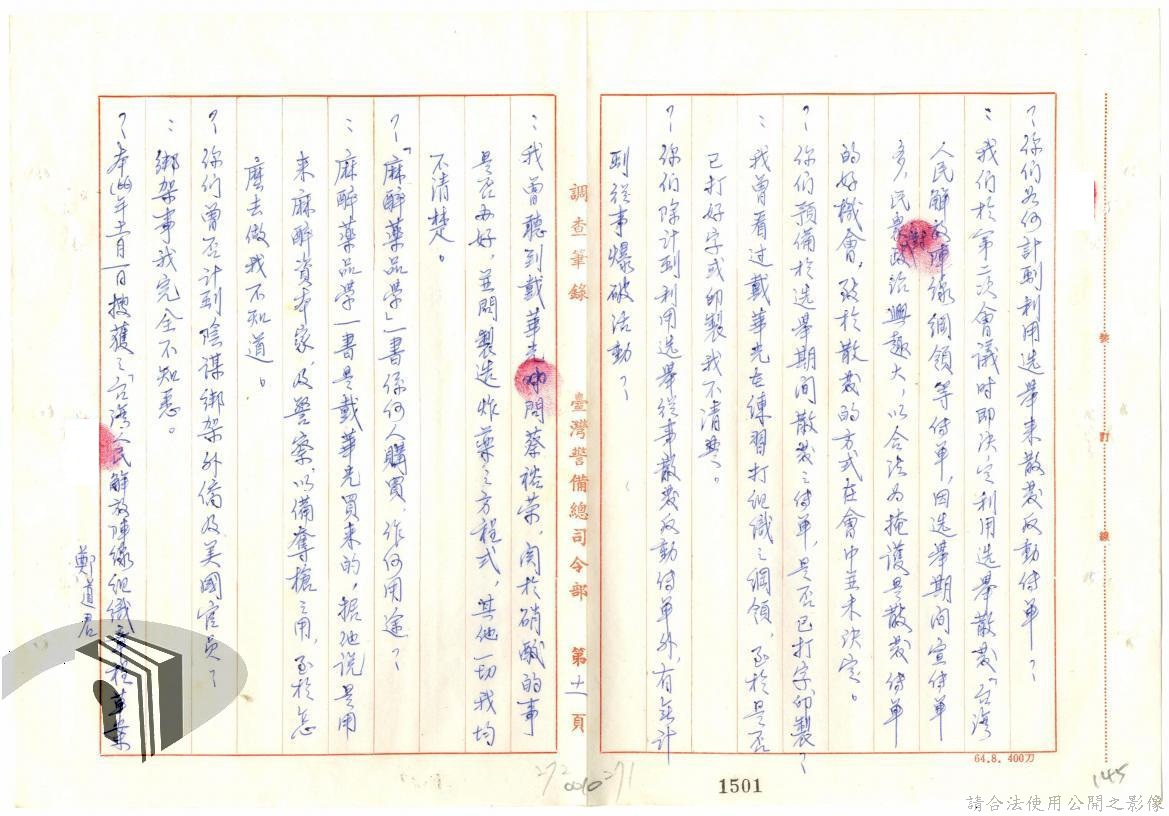 ？你們如何計劃利用選舉來散發反動傳單？
：我們於第二次會議時即決定利用選舉散發「台灣
人民解放陣線綱領等傳單，因選舉期間宣傳單
多，民眾政治興趣大，以合法為掩護是散發傳單
的好機會，致於散發的方式在會中並未決定。
？你們預備於選舉期間散發之傳單，是否已打字、印製？
：我曾看过戴華光在練習打組織之綱領，至於是否
已打好字或印製我不清楚。
？你們除計劃利用選舉從事散發反動傳單外，有無計
劃從事爆破活動？
調查筆錄 臺灣警備總司令部 第十一頁
：我曾聽到戴華光詢問蔡裕荣，関於硝酸的事
是否办好，並問製造炸藥之方程式，其他一切我均
不清楚。
？「麻醉藥品學」一書係何人購買，作何用途？
：麻醉藥品學一書是戴華光買来的，据他说是用
来麻醉資本家，及警察，以備奪槍之用，至於怎
麼去做我不知道。
？你们曾否計劃陰謀綁架外僑及美國官員？
：綁架事我完全不知悉。
？本(66)年十一月一日搜獲之「台湾人民解放陣線組織章程草案
鄭道君
裝 訂 線
64.8. 400刀
272 0010 271
1501
145
請合法使用公開之影像